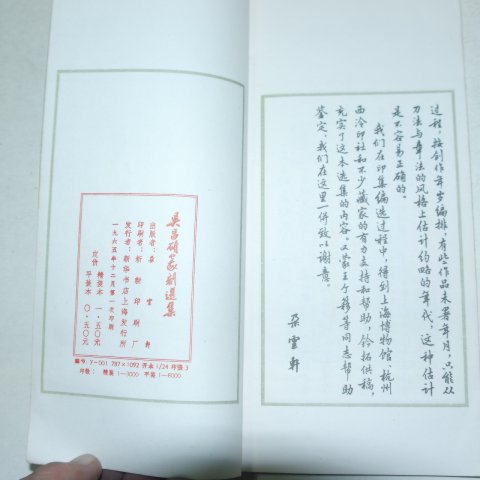 过程，按创作年岁编排，有些作品未署年月，只能从
刀法与章法的风格上估计约略的年代，这种估计
是不容易正确的。
我们在印集编选过程中，得到上海博物馆、杭州
西泠印社和不少藏家的有力支持和帮助，钤拓供稿，
充实了这本选集的内容。又蒙王个簃等同志帮助
鉴定，我们在这里一併致以谢意。
朵雲軒
吴昌碩篆刻選集
出版者：朵雲軒
印刷者：新
印刷厂
发行者：新华书店上海发行所
一九六五年十二月第一次印刷
定价 精装本 一·五〇元
平装本 〇·五〇元
編号：y-001 787×1092 开本1/24 印张3
印数：精装1—3000 平装1—6000